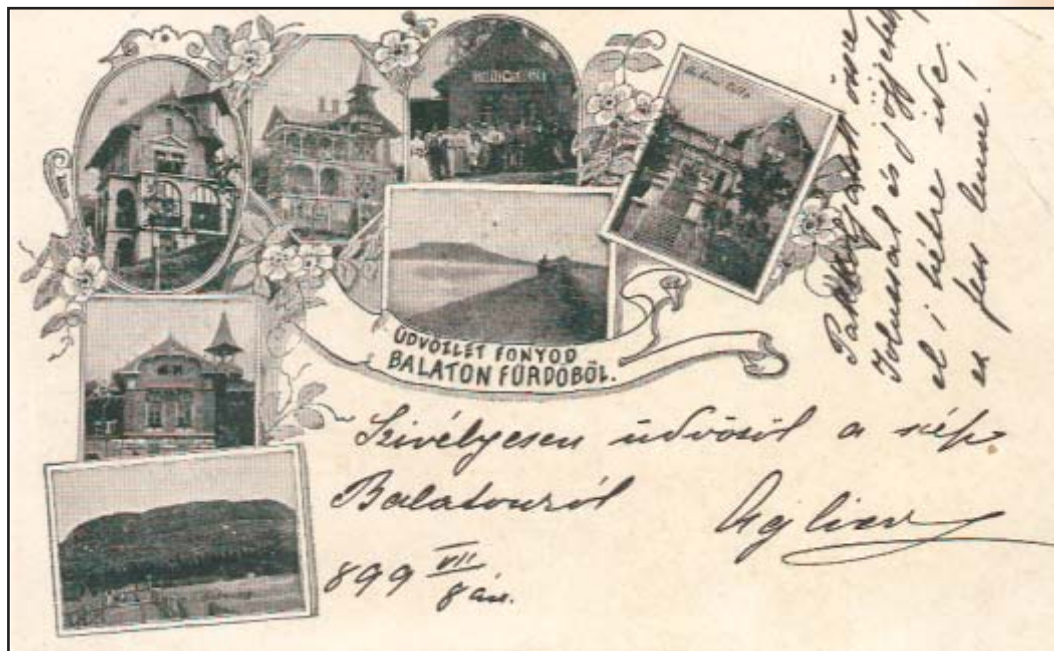 ÜDVÖZLET FONYOD
BALATON FÜRDŐBŐL.
Szivélyesen üdvözöl a szép
Balatonról
899 VII
8 án.
össze
Jolussal és jöjjetek
el i hétre ide
ez fess lenne!